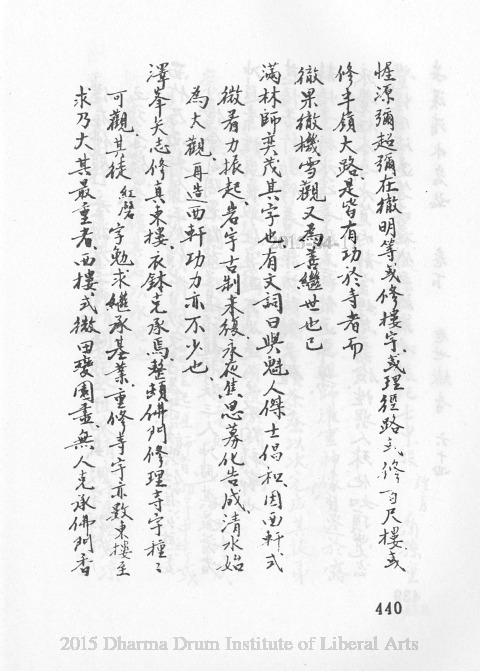 惺源彌超彌在撤明等或修樓宇或理徑路或修百尺樓或
修半嶺大路是皆有功於寺者而
徹果徹機雪觀又為善繼世也已
滿林師奕茂其字也有文詞日與魁人傑士倡和因西軒式
微者力振起岩宇古制未復承夜焦思募化告成清水始
為大觀再造西軒功力亦不少也
澤峯矢志修真東樓衣鉢克承焉整頓佛門修理寺宇種々
可觀其徒紅磬字勉求繼承基業重修寺宇亦數東樓至
求乃大其最重者西樓式微田藝園盡無人克承佛門香
440
2015 Dharma Drum Institute of Liberal Arts